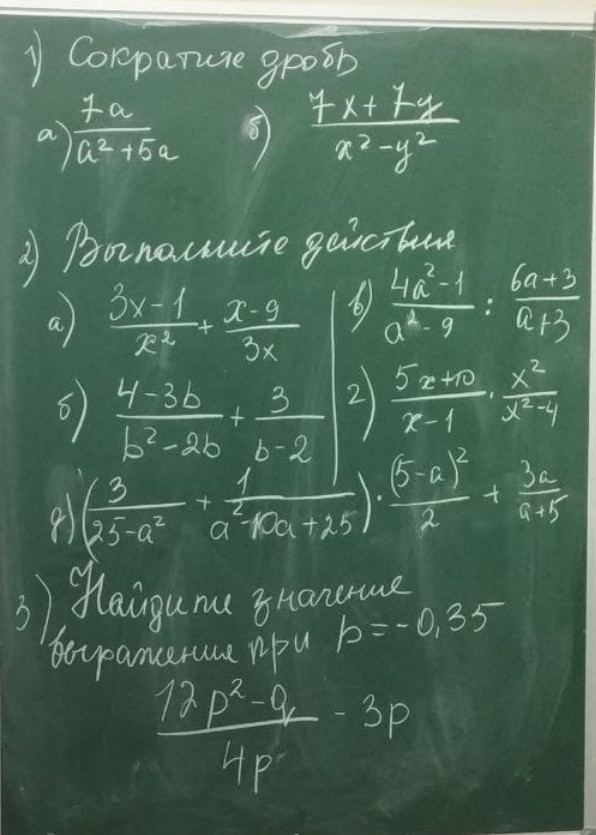 1) Сократите дробь
а) 7a/(a²+5a) б) (7x+7y)/(x²-y²)
2) Выполните действия
а) (3x-1)/x² + (x-9)/3x
б) (4-3b)/(b²-2b) + 3/(b-2)
в) (4a²-1)/(a²-9) : (6a+3)/(a+3)
г) (5x+10)/(x-1) · x²/(x²-4)
д) (3/(25-a²) + 1/(a²-10a+25)) · (5-a)²/2 + 3a/(a+5)
3) Найдите значение
выражения при p=-0,35
(12p²-q)/4p - 3p